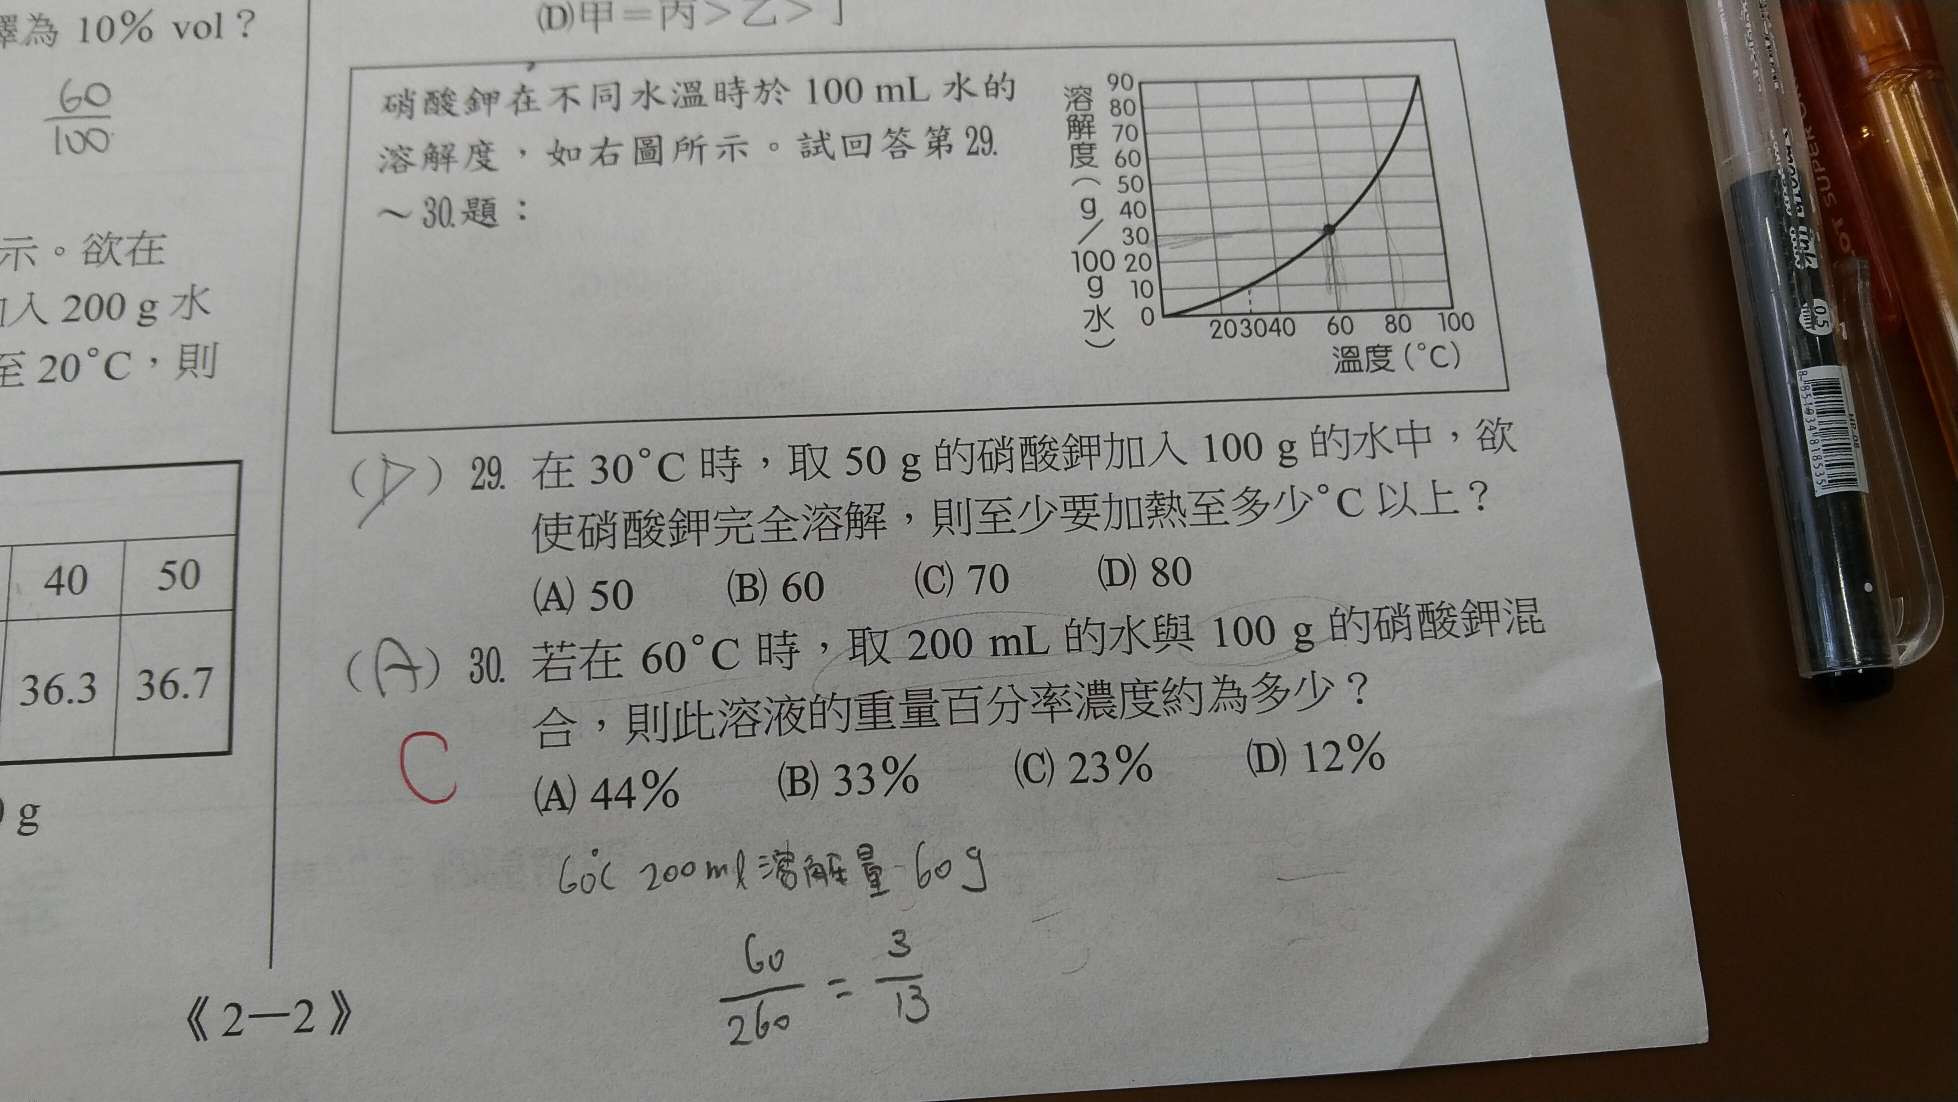 擇為 10% vol？
60
100
示。欲在
加入 200 g 水
至 20°C，則
40 50
36.3 36.7
g
《2—2》
(D)甲＝丙＞乙＞丁
硝酸鉀在不同水溫時於 100 mL 水的
溶解度，如右圖所示。試回答第 29.
～30.題：
溶解度（g／100g水）
90
80
70
60
50
40
30
20
10
0
20 30 40 60 80 100
溫度(°C)
(D) 29. 在 30°C 時，取 50 g 的硝酸鉀加入 100 g 的水中，欲
使硝酸鉀完全溶解，則至少要加熱至多少°C 以上？
(A) 50 (B) 60 (C) 70 (D) 80
(A) 30. 若在 60°C 時，取 200 mL 的水與 100 g 的硝酸鉀混
合，則此溶液的重量百分率濃度約為多少？
C
(A) 44% (B) 33% (C) 23% (D) 12%
60°C 200ml 溶解量 60g
60
260
=
3
13
0.5